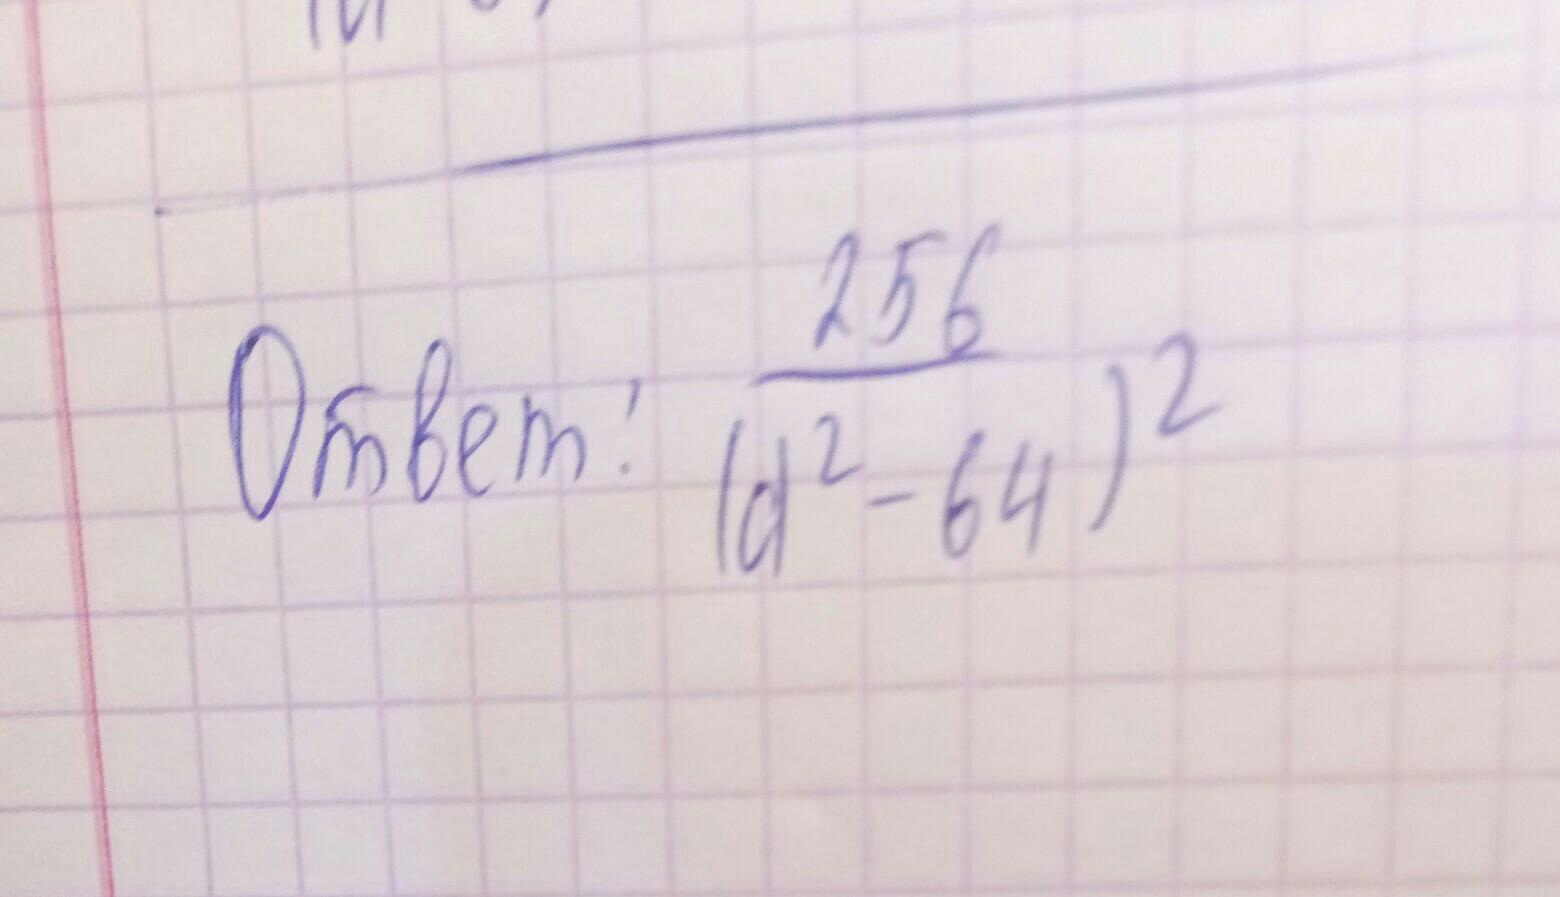 Ответ: 256
(d²-64)²